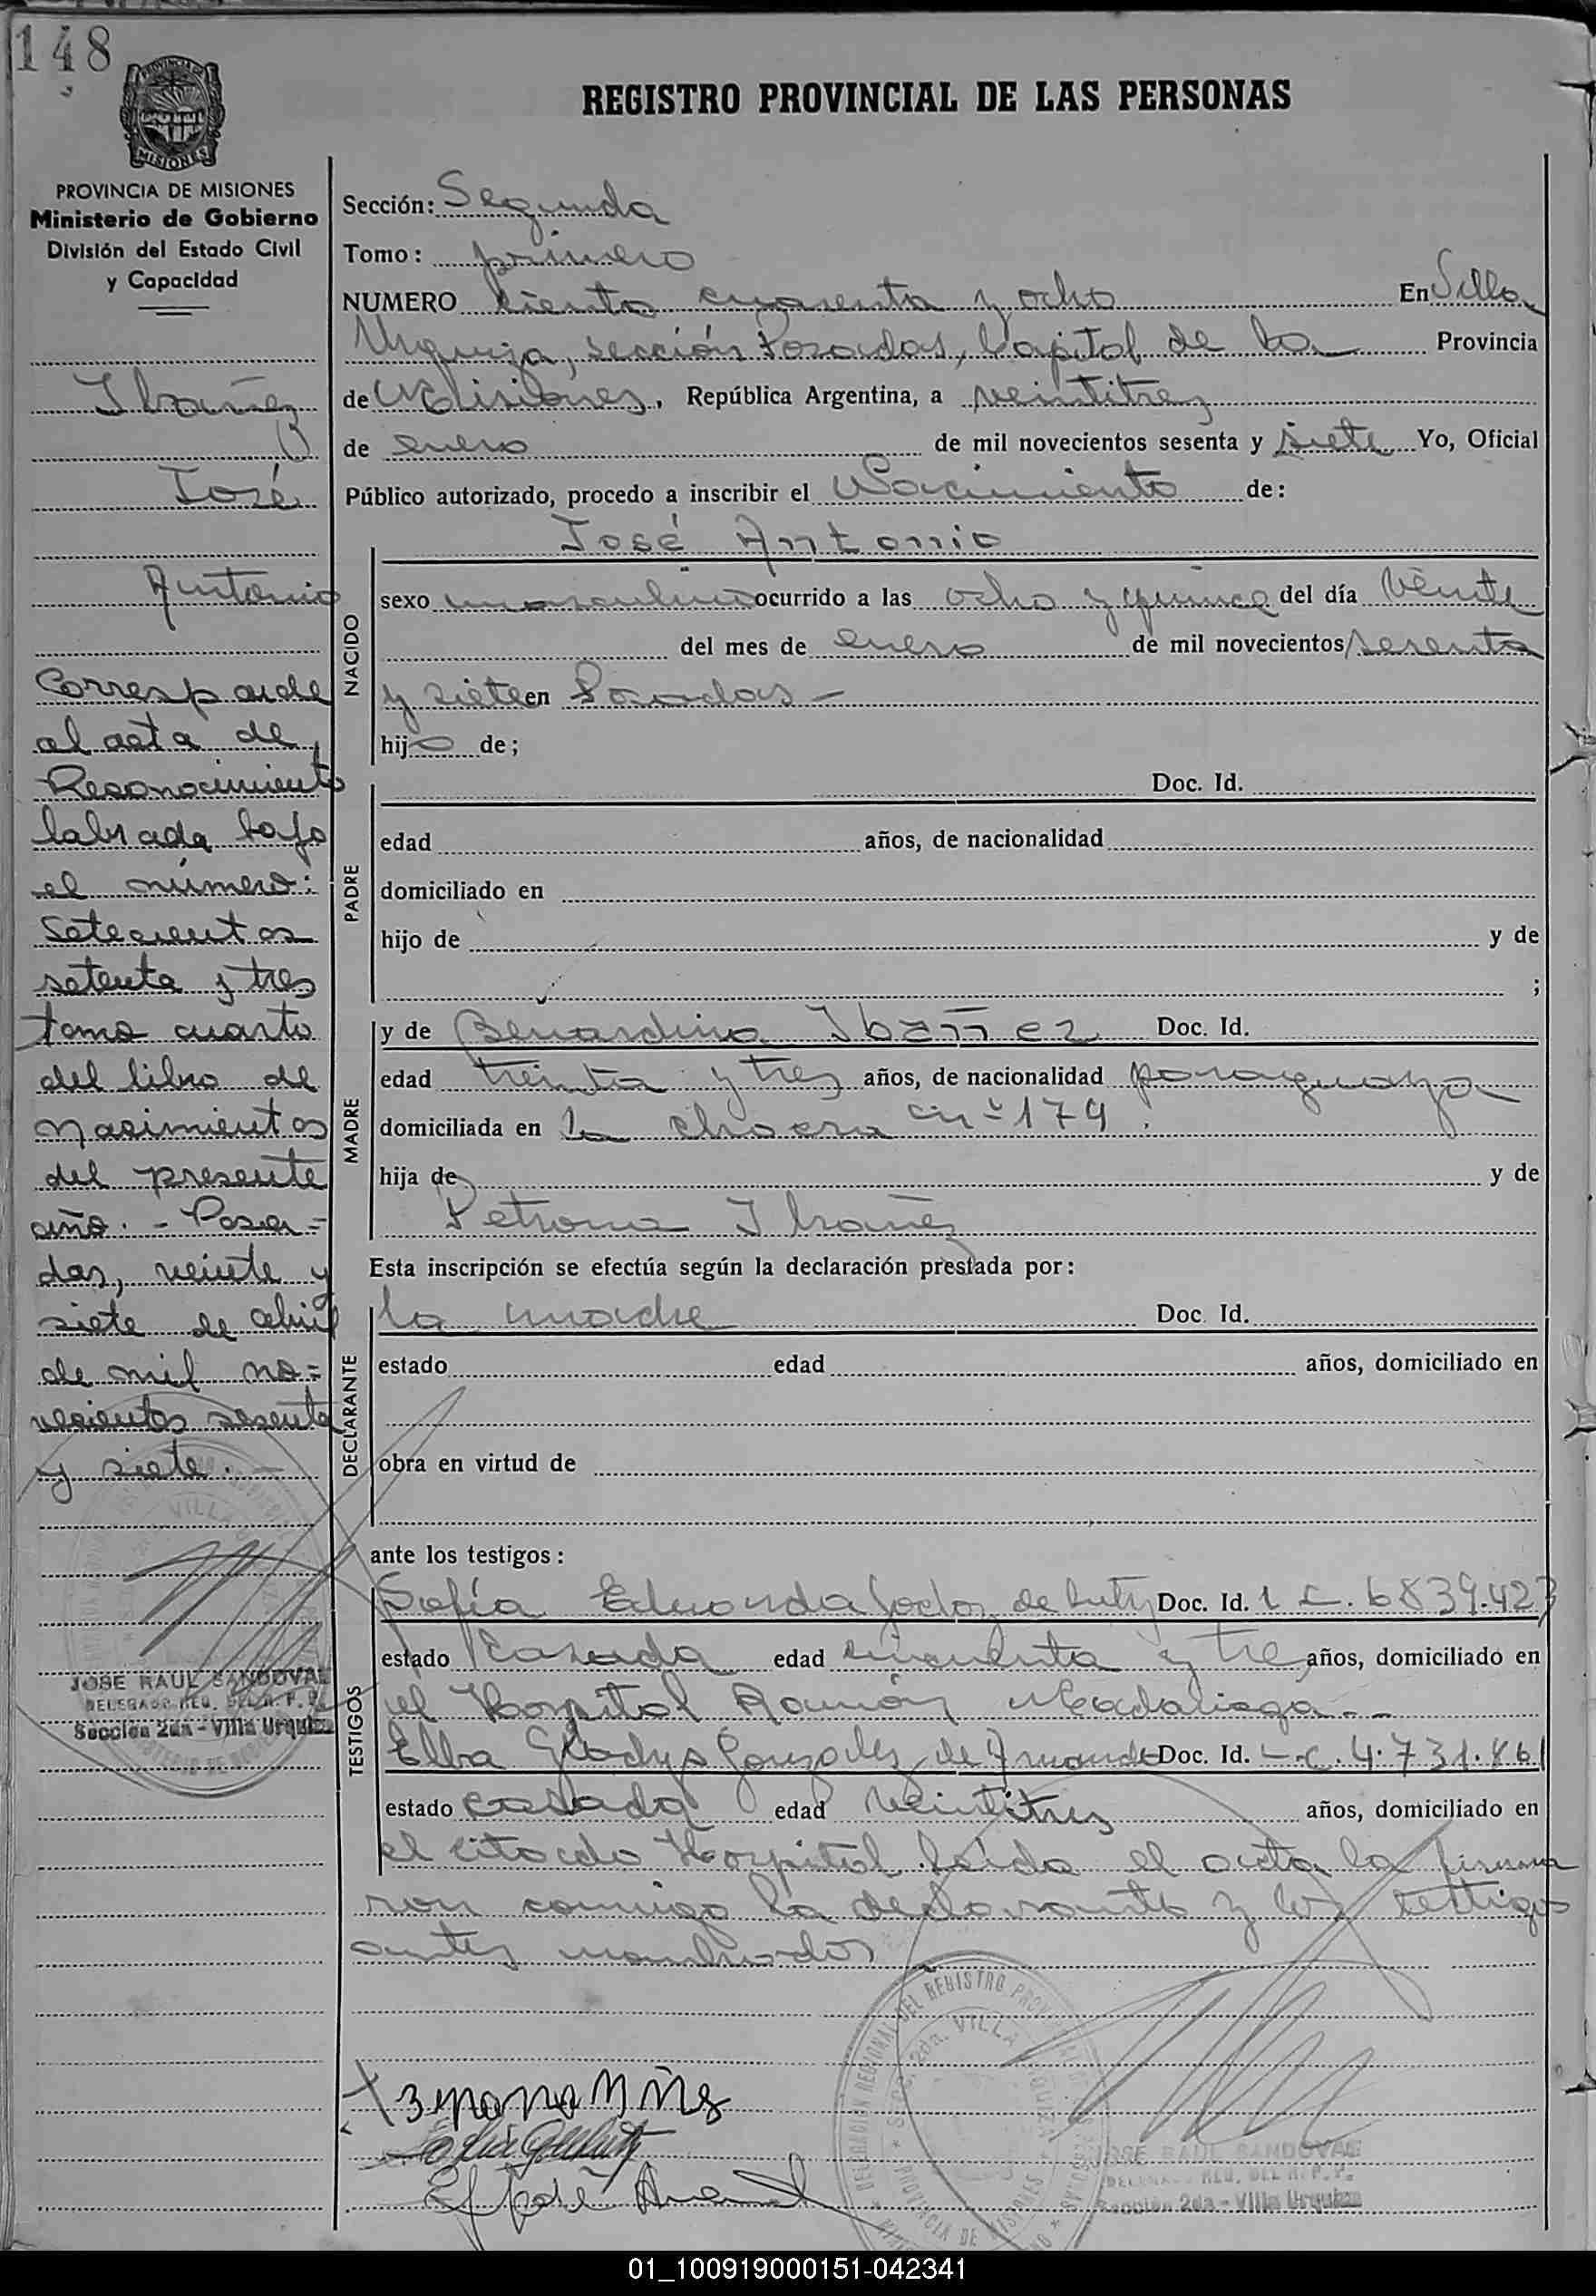 148
PROVINCIA DE MISIONES
Ministerio de Gobierno
División del Estado Civil
y Capacidad
Ibañez
José
Antonio
Corresponde
al acta de
Reconocimiento
labrada bajo
el número:
Setecientos
setenta y tres
tomo cuarto
del libro de
nacimientos
del presente
año. - Posa=
das, veinte y
siete de abril
de mil no=
vecientos sesenta
y siete. -
JOSE RAUL SANDOVAL
DELEGADO REG. DEL R. P. P.
Sección 2da - Villa Urquiza
REGISTRO PROVINCIAL DE LAS PERSONAS
Sección: Segunda
Tomo: primero
NUMERO ciento cuarenta y ocho En Villa
Urquiza, sección Posadas, Capital de la Provincia
de Misiones, República Argentina, a veintitrez
de enero de mil novecientos sesenta y siete Yo, Oficial
Público autorizado, procedo a inscribir el Nacimiento de:
José Antonio
NACIDO
sexo masculino ocurrido a las ocho y quince del día veinte
del mes de enero de mil novecientos sesenta
y siete en Posadas -
hijo de;
PADRE
Doc. Id.
edad años, de nacionalidad
domiciliado en
hijo de y de
;
MADRE
y de Bernardina Ibañez Doc. Id.
edad treinta y tres años, de nacionalidad paraguaya
domiciliada en la chacra nº 179
hija de y de
Petrona Ibañez
Esta inscripción se efectúa según la declaración prestada por:
DECLARANTE
la madre Doc. Id.
estado edad años, domiciliado en
obra en virtud de
ante los testigos:
TESTIGOS
Sofía Eduarda de Doc. Id. L C. 6839.423
estado Casada edad cincuenta y tre años, domiciliado en
el Hospital Ramón Madariaga - -
Elba Gladys Gonzalez de Doc. Id. L.C. 4.731.861
estado casada edad veintitres años, domiciliado en
el citado Hospital. Leida el acta la firma
ron conmigo la declarante y los testigos
antes nombrados
JOSE RAUL SANDOVAL
DELEGADO REG. DEL R. P. P.
Sección 2da - Villa Urquiza
01_100919000151-042341